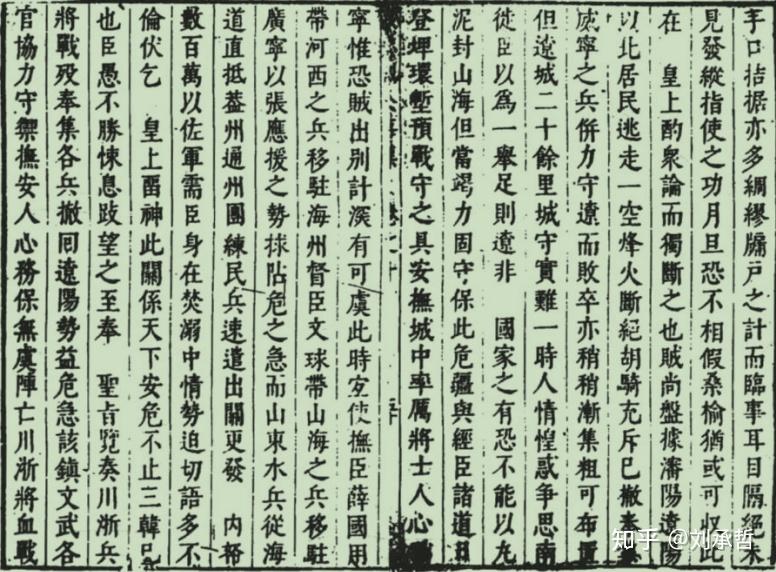 手口拮据亦多綢繆牖戸之計而臨事耳目隔絕未
見發縱指使之功月旦恐不相假桑榆猶或可収此
在　皇上酌衆論而獨斷之也賊尚盤據瀋陽遼陽
以此居民逃走一空烽火斷絕胡騎充斥巳撤
威寧之兵併力守遼而敗卒亦稍稍漸集粗可布置
但遼城二十餘里城守實難一時人情惶惑爭思南
徙臣以爲一舉足則遼非　國家之有恐不能以九
泥封山海但當竭力固守保此危疆與經臣諸道
登埤環塹預戰守之具安撫城中率厲將士人心
寧惟恐賊出別計深有可虞此時宜使撫臣薛國用
帶河西之兵移駐海州督臣文球帶山海之兵移駐
廣寧以張應援之勢拯阽危之急而山東水兵從海
道直抵葢州通州團練民兵速遣出關更發　内帑
數百萬以佐軍需臣身在焚溺中情勢迫切語多不
倫伏乞　皇上畱神此關係天下安危不止三韓巳
也臣愚不勝悚息跂望之至奉　聖旨覽奏川浙兵
將戰歿奉集各兵撤囘遼陽勢益危急該鎮文武各
官協力守禦撫安人心務保無虞陣亡川浙將血戰
知乎 @刘承哲